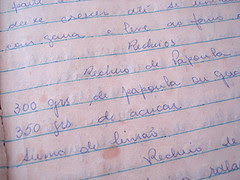 deixe crescer até
com gema e leve ao forno
Recheios
Recheio de Papoula
300 grs de papoula ou
350 grs de açucar
Suma de limão.
Recheio de